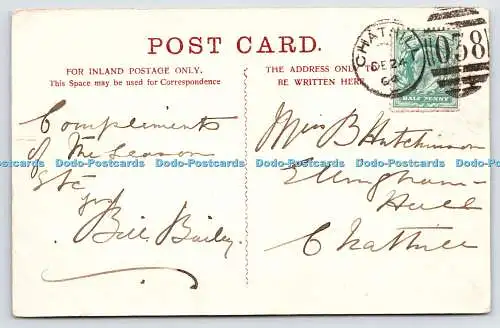 POST CARD.
FOR INLAND POSTAGE ONLY.
This Space may be used for Correspondence
THE ADDRESS ONLY TO
BE WRITTEN HERE
CHATHILL
DE 24
04
058
HALF PENNY
Compliments
of the Season
Etc
Bill Bailey.
Miss B Hutchinson
Ellingham
Hall
Chathill
Dodo-Postcards Dodo-Postcards Dodo-Postcards Dodo-Postcards Dodo-Postcards Dodo-Postcards